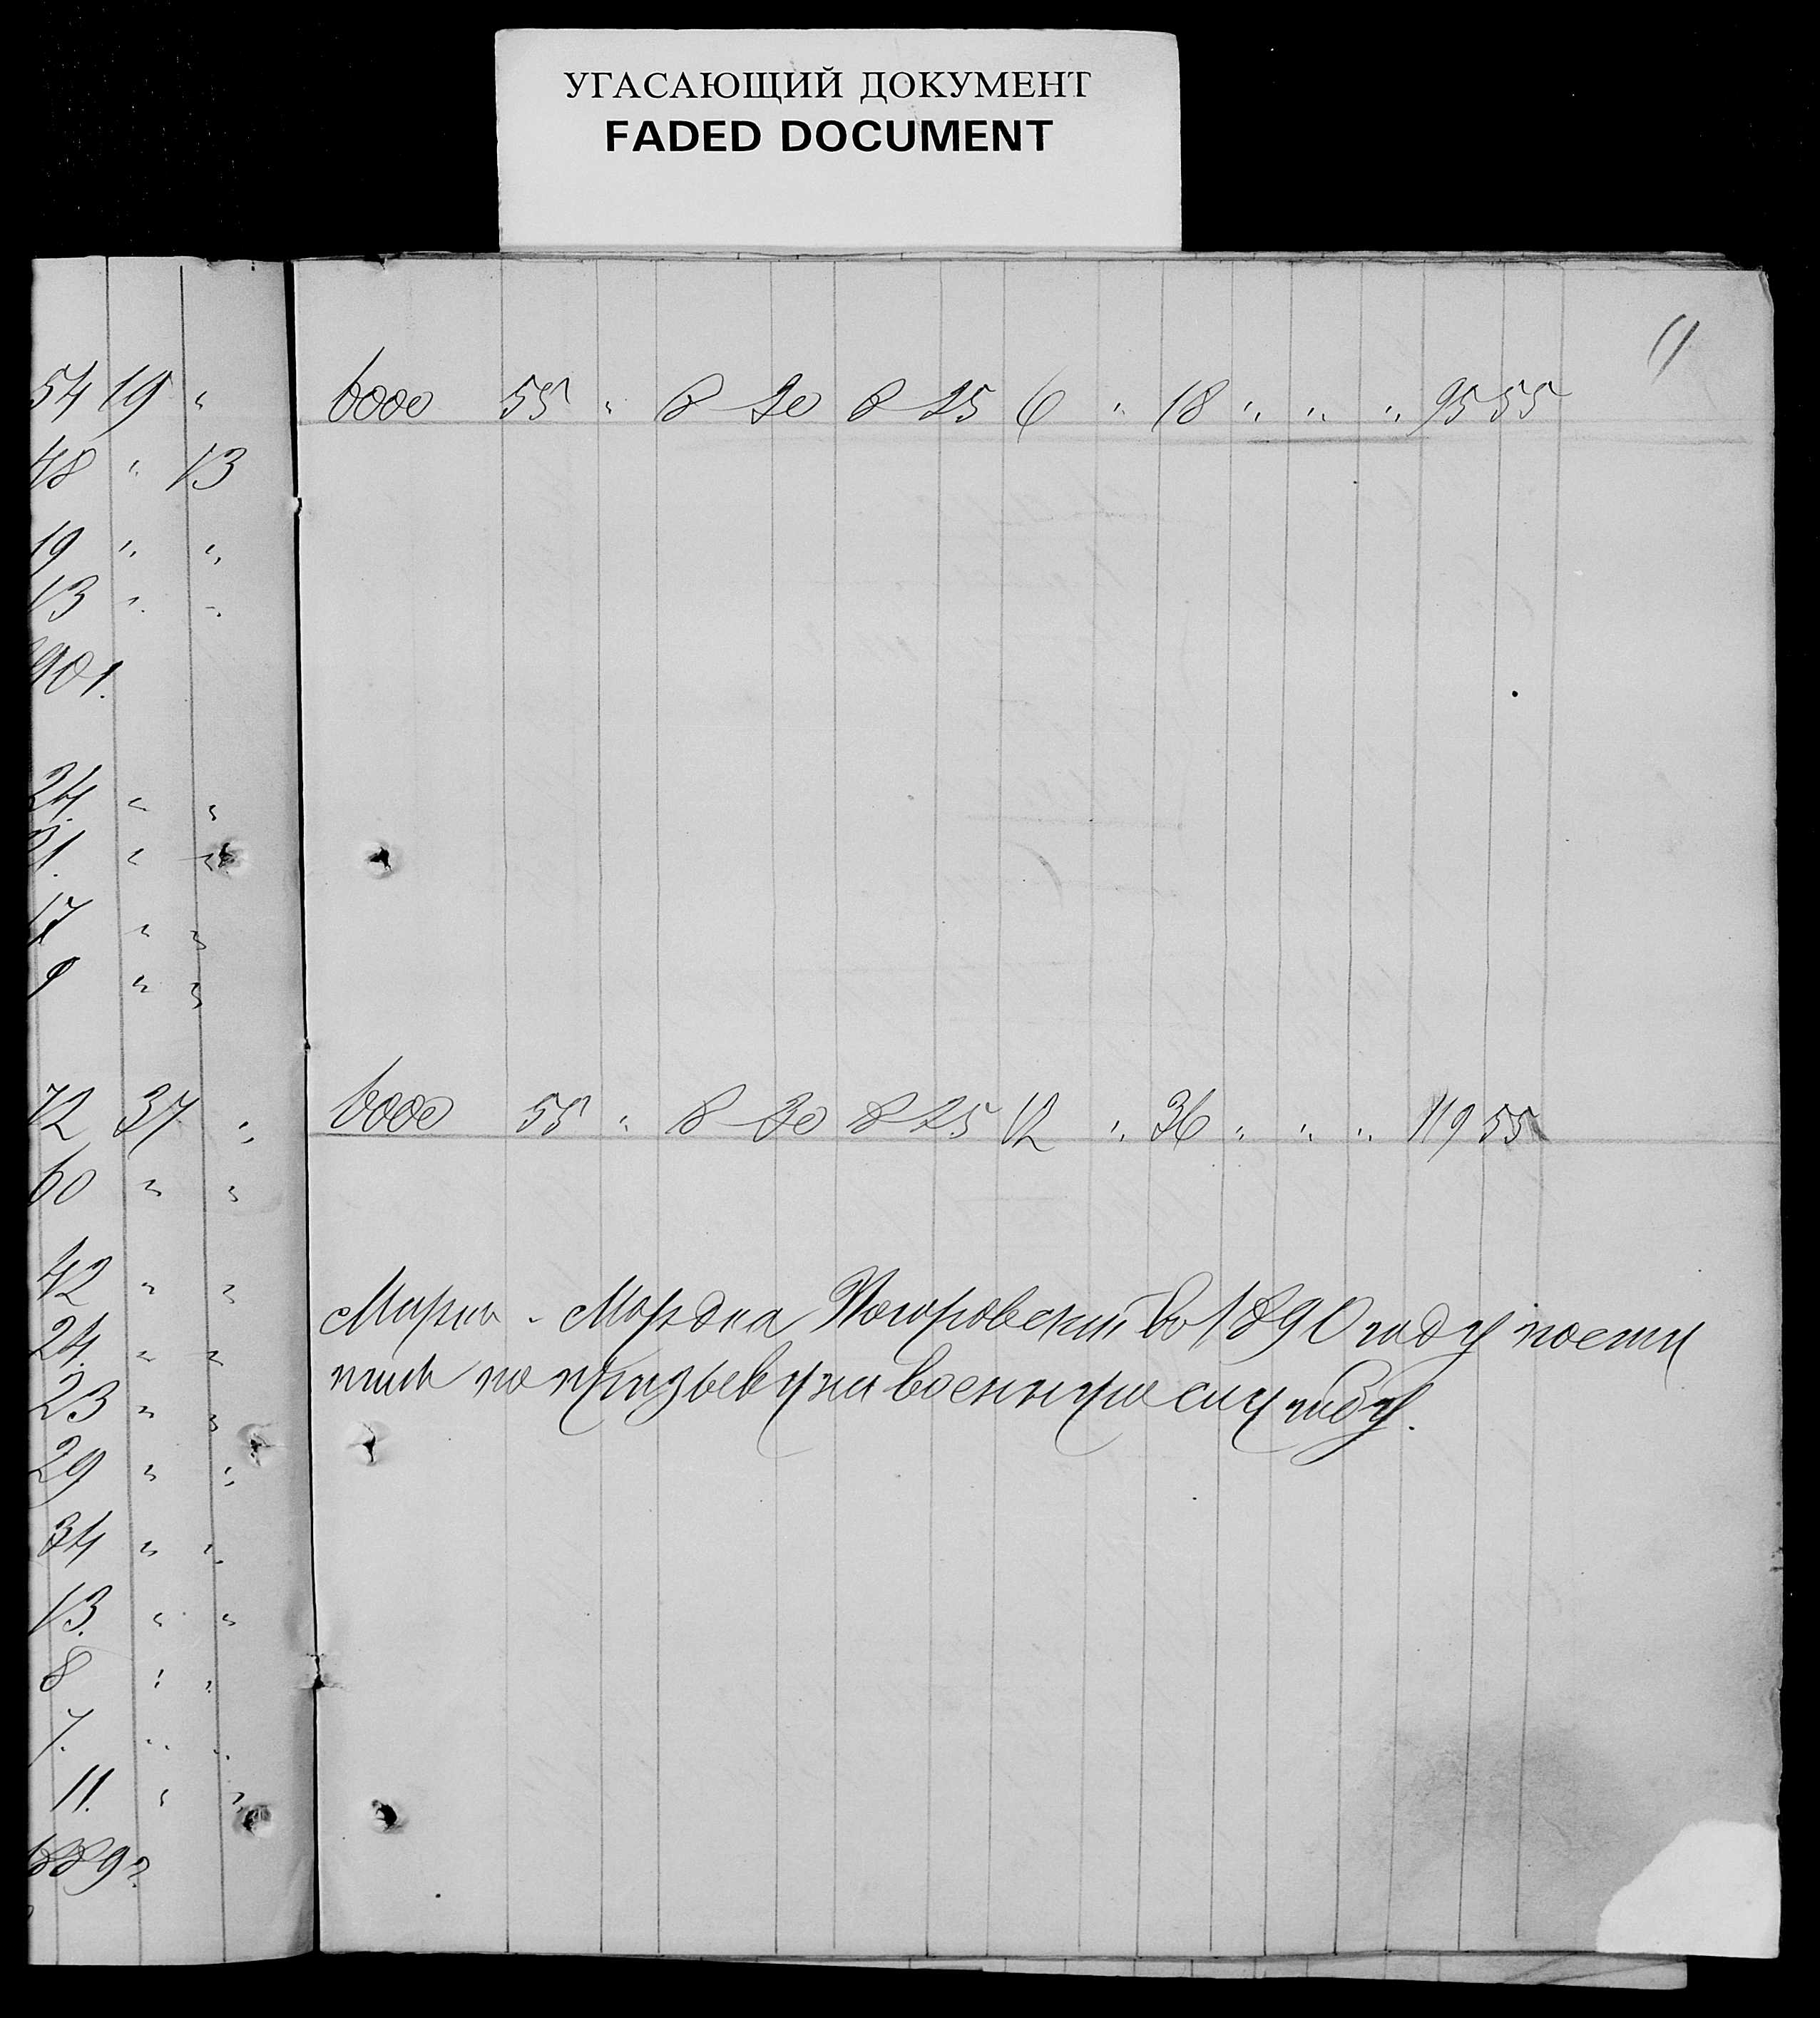 УГАСАЮЩИЙ ДОКУМЕНТ
FADED DOCUMENT
11
54 19 "
48 " 13
19 " "
13 " "
901.
24. " "
21. " "
17 " "
9 " "
72 37 "
60 " "
42 " "
24. " "
23 " "
29 " "
34 " "
13. " "
8 " "
7. " "
11. " "
6000 55 " 8 20 8 25 6 " 18 " " " 95 55
6000 55 " 8 30 8 25 12 " 36 " " " 119 55
Мордка во 1890 году посту
пилъ по призыву на военную службу.